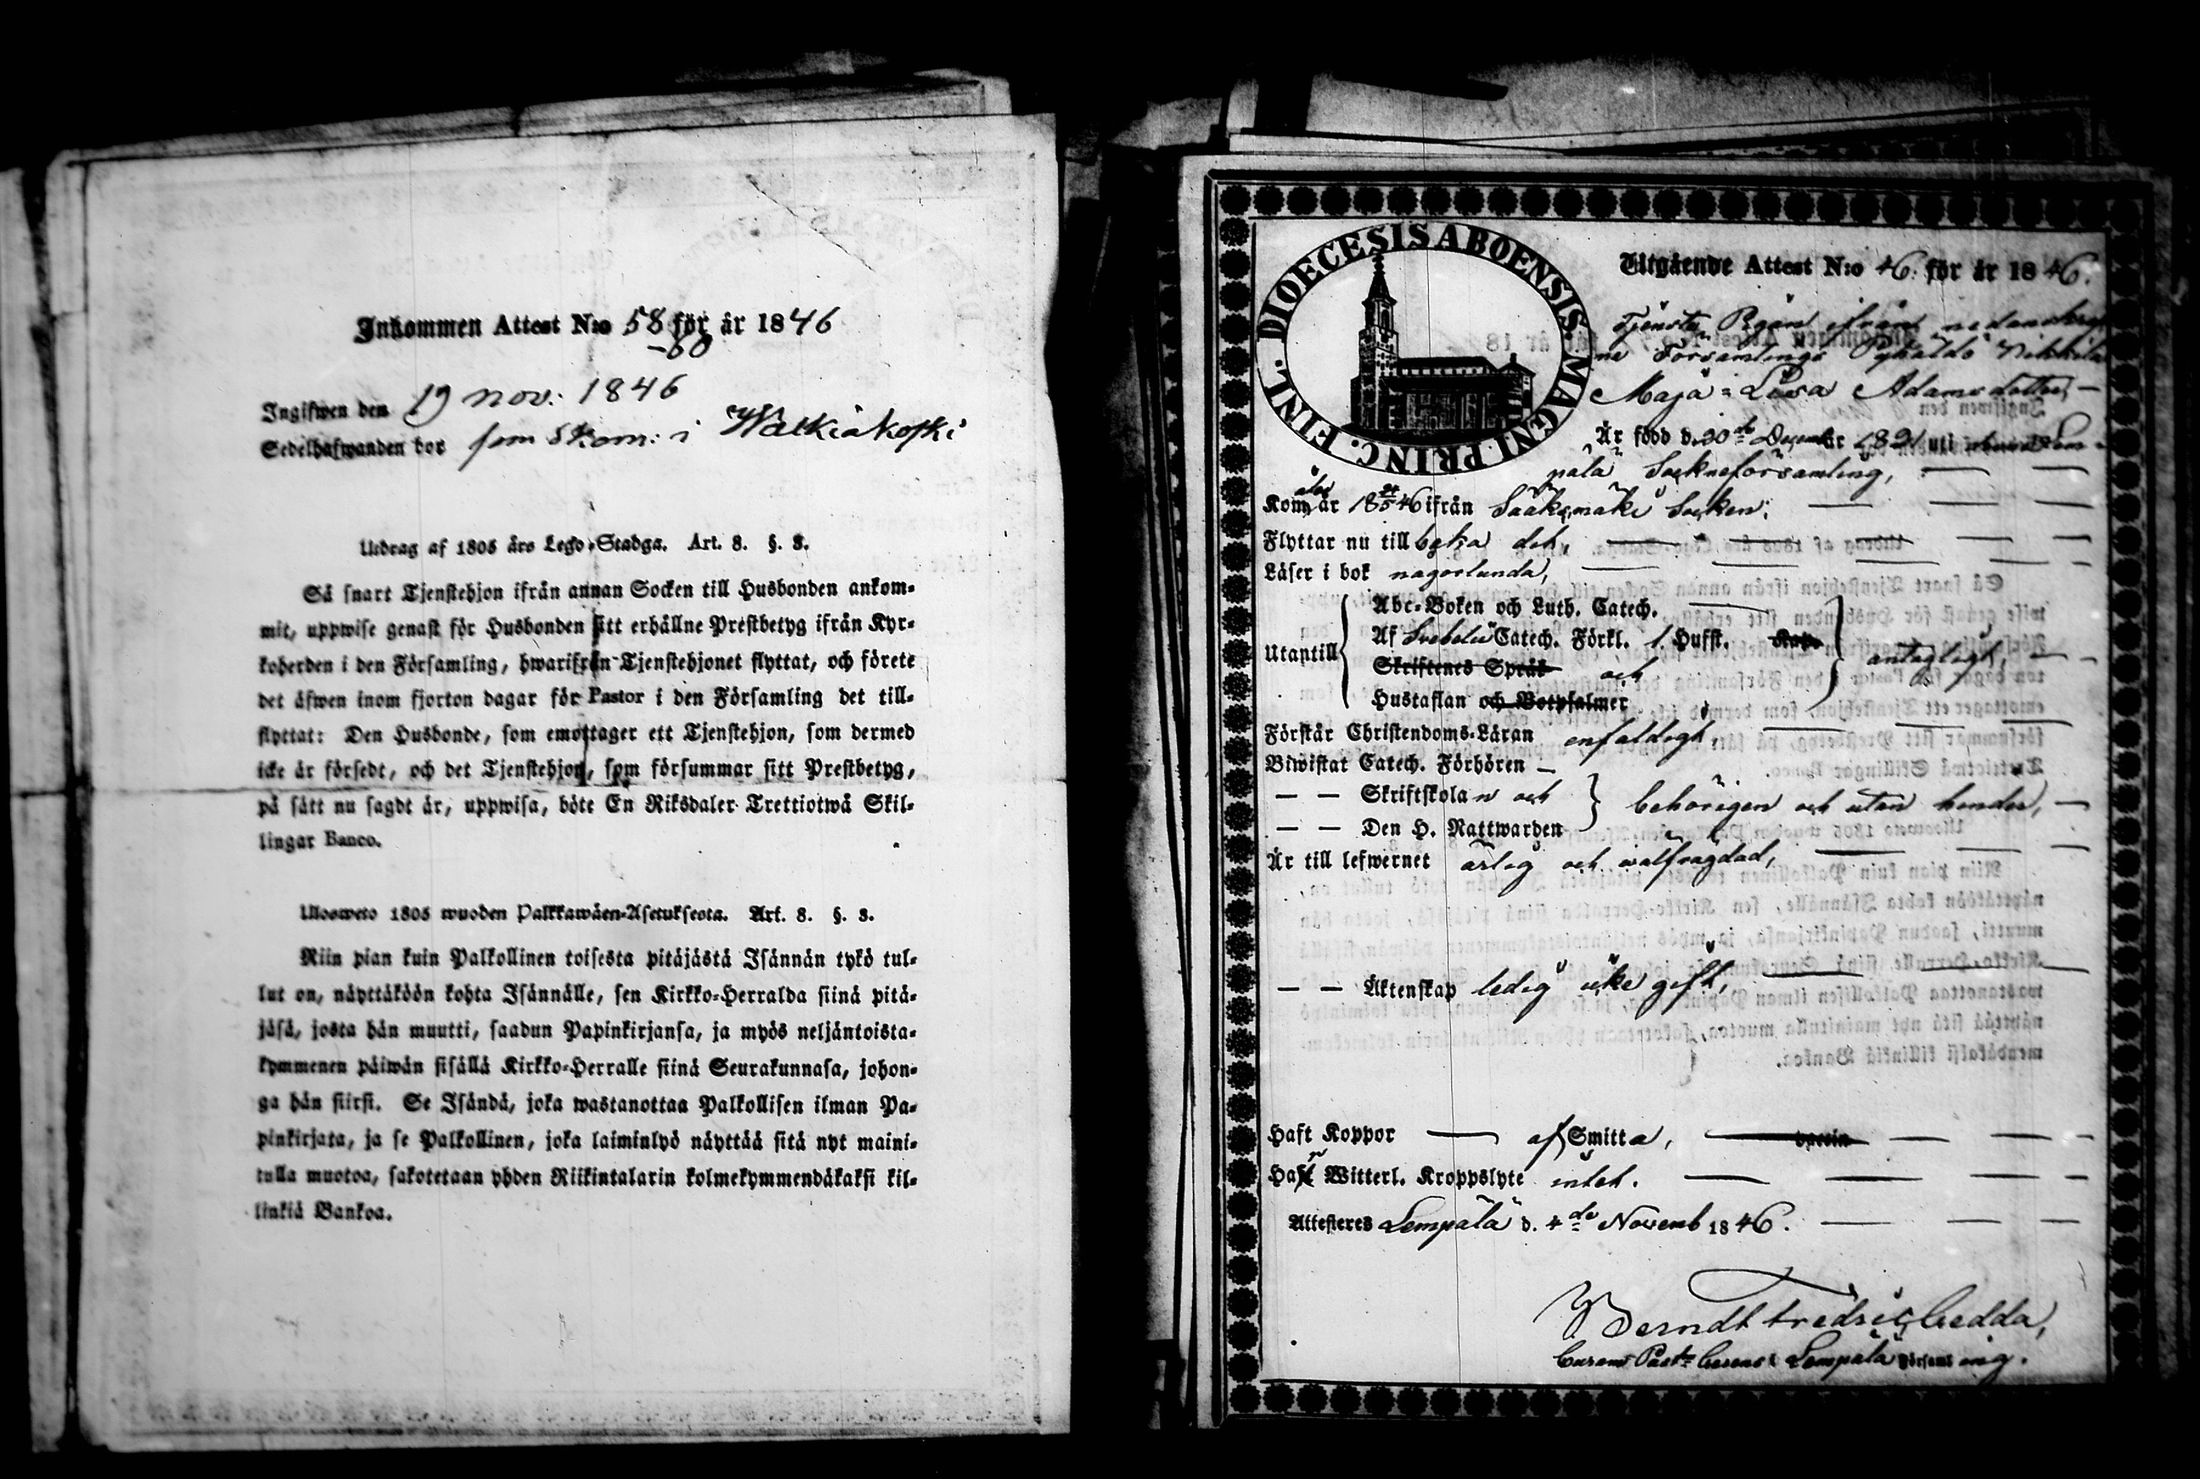 Inkommen Attest N:o 58 för år 1846
-60
Ingifwen den 19 nov: 1846
Sedelhafwanden bor hem Skom: i Walkiakoski
Utdrag af 1805 års Lego-Stadga. Art. 8. §. 3.
Så snart Tjenstehjon ifrån annan Socken till Husbonden ankom-
mit, uppwise genast för Husbonden sitt erhållne Prestbetyg ifrån Kyr-
koherden i den Församling, hwarifrån Tjenstehjonet flyttat, och förete
det äfwen inom fjorton dagar för Pastor i den Församling det till-
flyttat: Den Husbonde, som emottager ett Tjenstehjon, som dermed
icke är försedt, och det Tjenstehjon, som försummar sitt Prestbetyg,
på sätt nu sagdt är, uppwisa, böte En Riksdaler Trettiotwå Skil-
lingar Banco.
Ulosweto 1805 wuoden Palkkawäen-Asetuksesta. Art. 8. §. 3.
Niin pian kuin Palkollinen toisesta pitäjästä Isännän tykö tul-
lut on, näyttäköön kohta Isännälle, sen Kirkko-Herralda siinä pitä-
jäsä, josta hän muutti, saadun Papinkirjansa, ja myös neljäntoista-
kymmenen päiwän sisällä Kirkko-Herralle siinä Seurakunnasa, johon-
ga hän siirsi. Se Isändä, joka wastanottaa Palkollisen ilman Pa-
pinkirjata, ja se Palkollinen, joka laiminlyö näyttää sitä nyt maini-
tulla muotoa, sakotetaan yhden Riikintalarin kolmekymmendäkaksi kil-
linkiä Bankoa.
DIOECESIS ABOENSIS. MAGNI PRINC. FINL.
Utgående Attest N:o 46. för år 1846.
Tjenste Pigan ifrån nedanskref-
ne Församlings Nikkilä
Maja Lisa Adamsdotter, -
Är född d. 20de Decemb år 182 uti Lem-
pälä Sockneförsamling,
Kom år 1846 ifrån Sääksmäki Socken.
Flyttar nu till baka dit,
Läser i bok någorlunda,
Abc-Boken och Luth. Catech.
Utantill Af Svebelii Catech. Förkl. 1. Hufst. Kap. antagligt,
Skriftenes Språk och
Hustaflan och Botpsalmer
Förstår Christendoms-Läran enfaldigt,
Biwistat Catech. Förhören -
- - Skriftskolan och behörigen och utan hinder, -
- - Den H. Nattwarden
Är till lefwernet ärlig och wälfrägdad,
- - Äktenskap ledig icke gift,
Haft Koppor af Smitta, vaccin
Har Witterl. Kroppslyte intet.
Attesteres Lempälä d. 4de Novemb 1846.
Berndt Fredric Gedda,
Lempälä Församl ing.